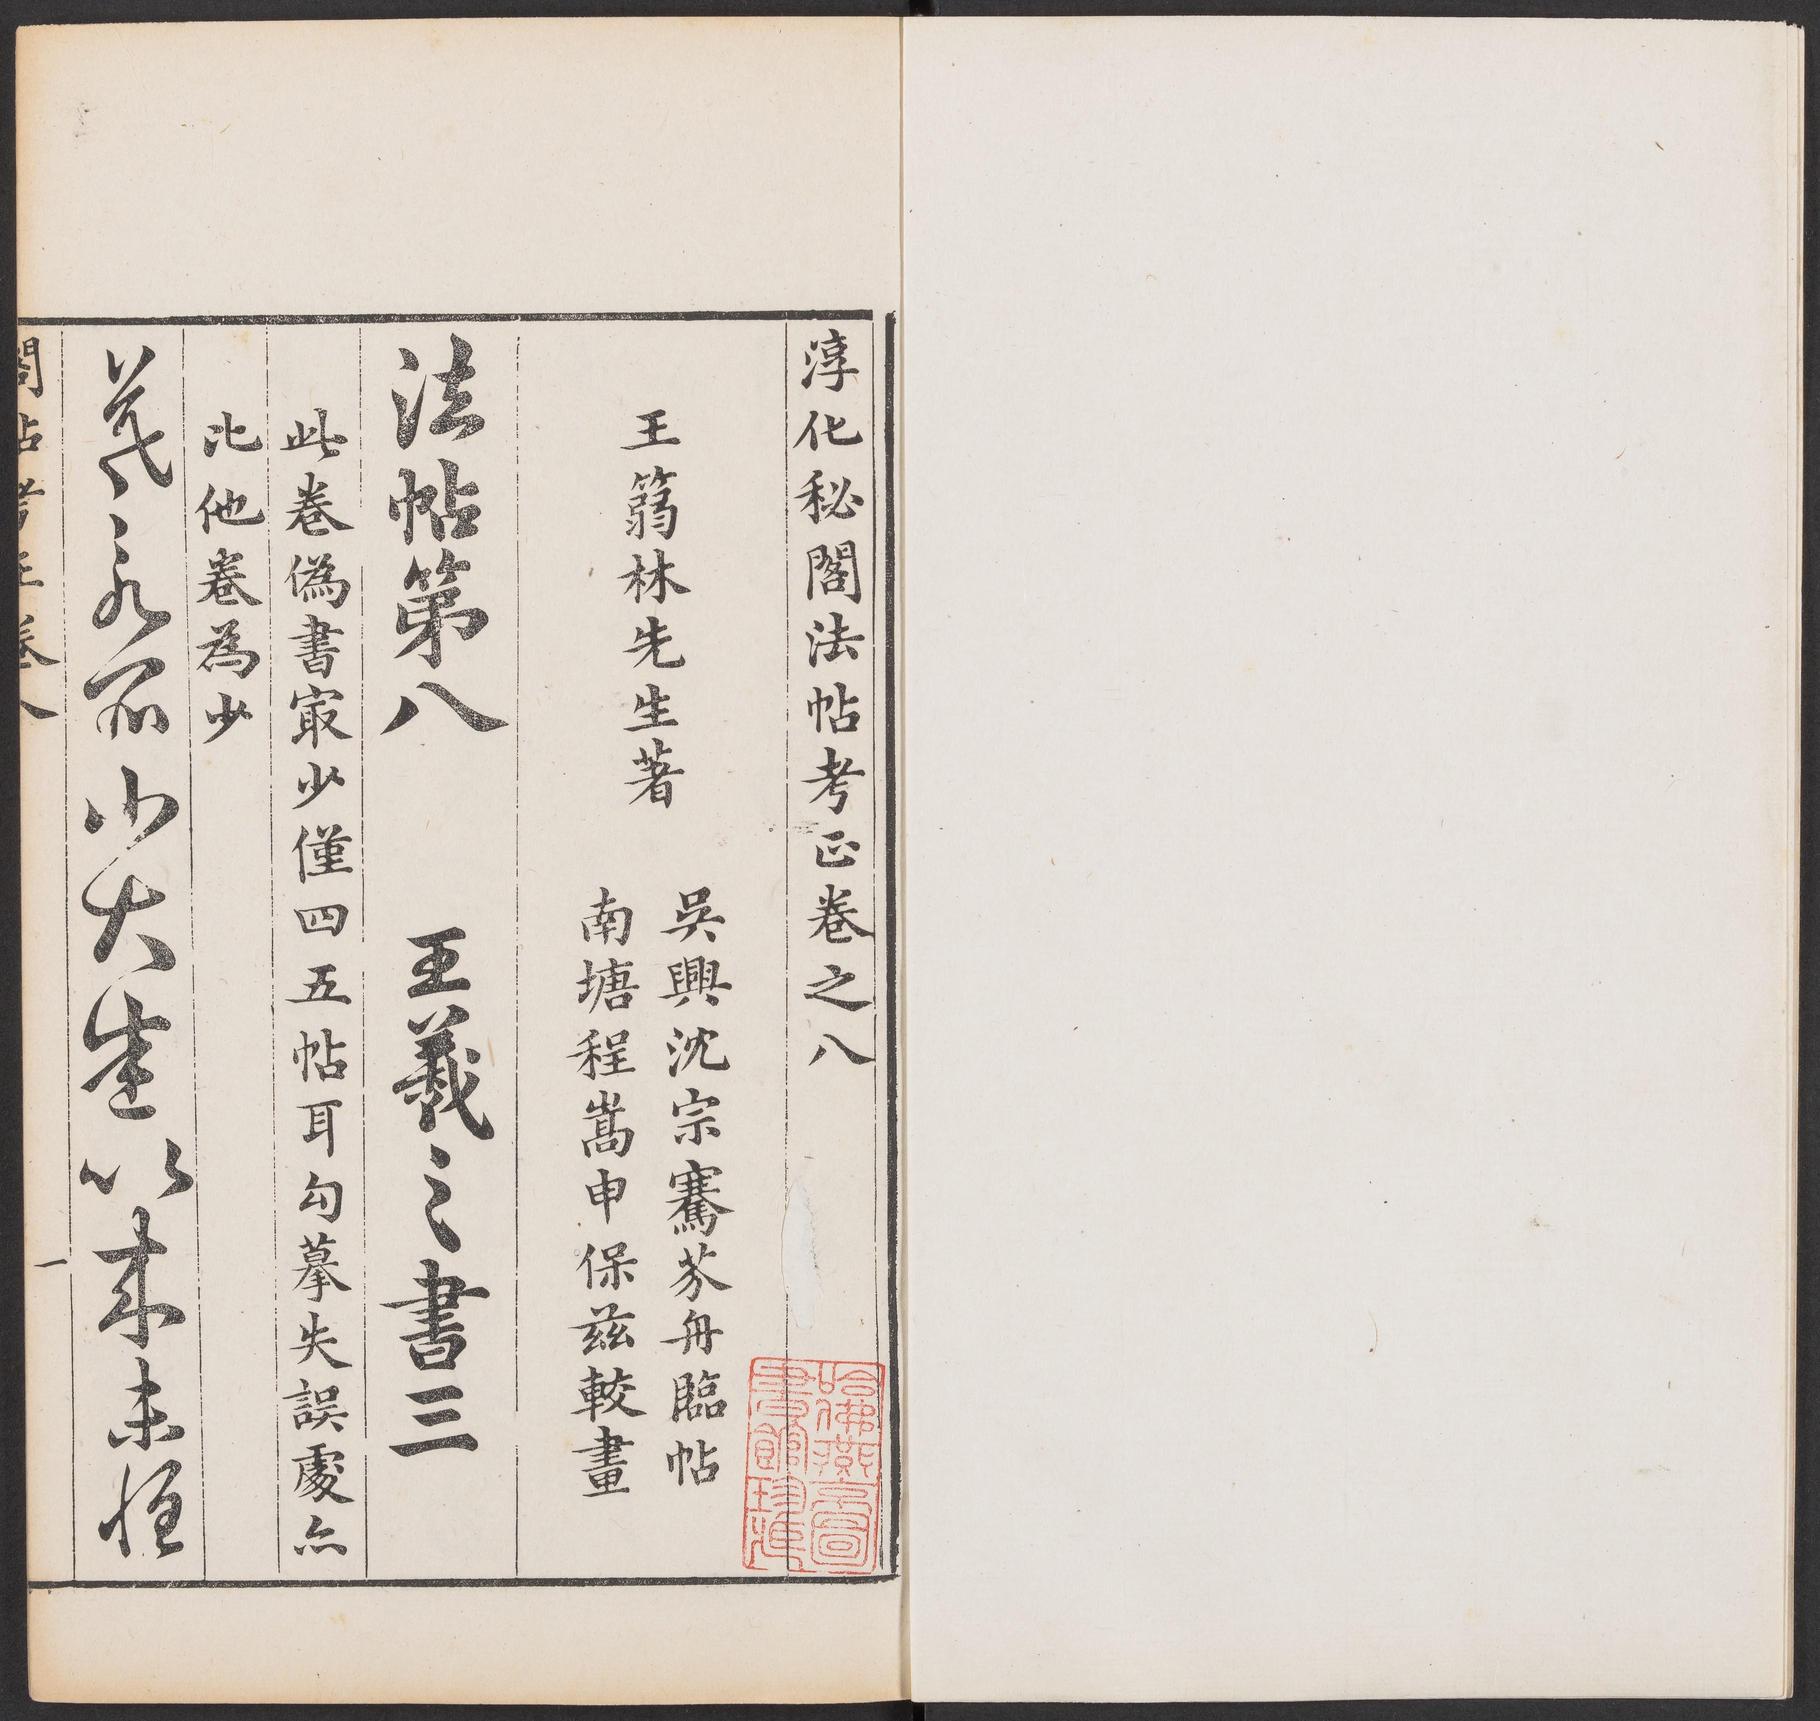 淳化秘閣法帖考正卷之八
王篛林先生著
吳興沈宗騫芥舟臨帖
南塘程嵩申保兹較畫
法帖第八 王羲之書三
此卷偽書㝡少僅四五帖耳勾摹失誤處亦
比他卷為少
羲之小大佳以來未
閣帖考正卷八 一
哈佛燕京圖
書館珍藏